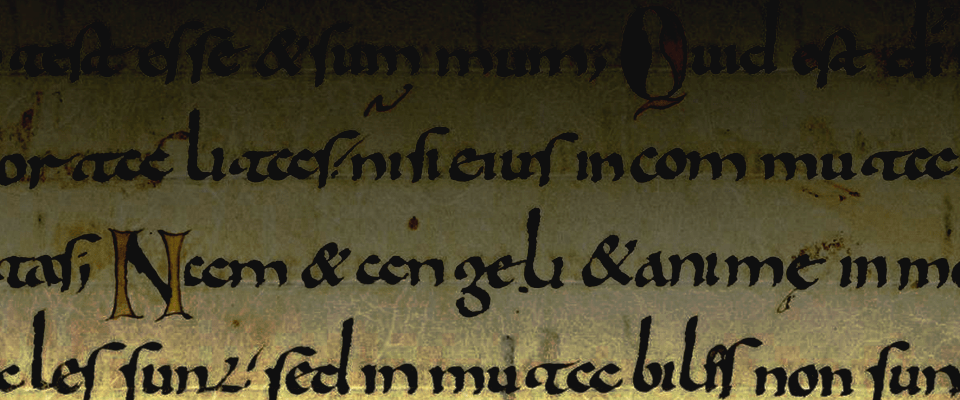 test esse & summum; Quid est di
ortalitas. nisi eius incommuta
tas; Nam & angeli & anime inmo
les sunt. sed inmutabiles non sun